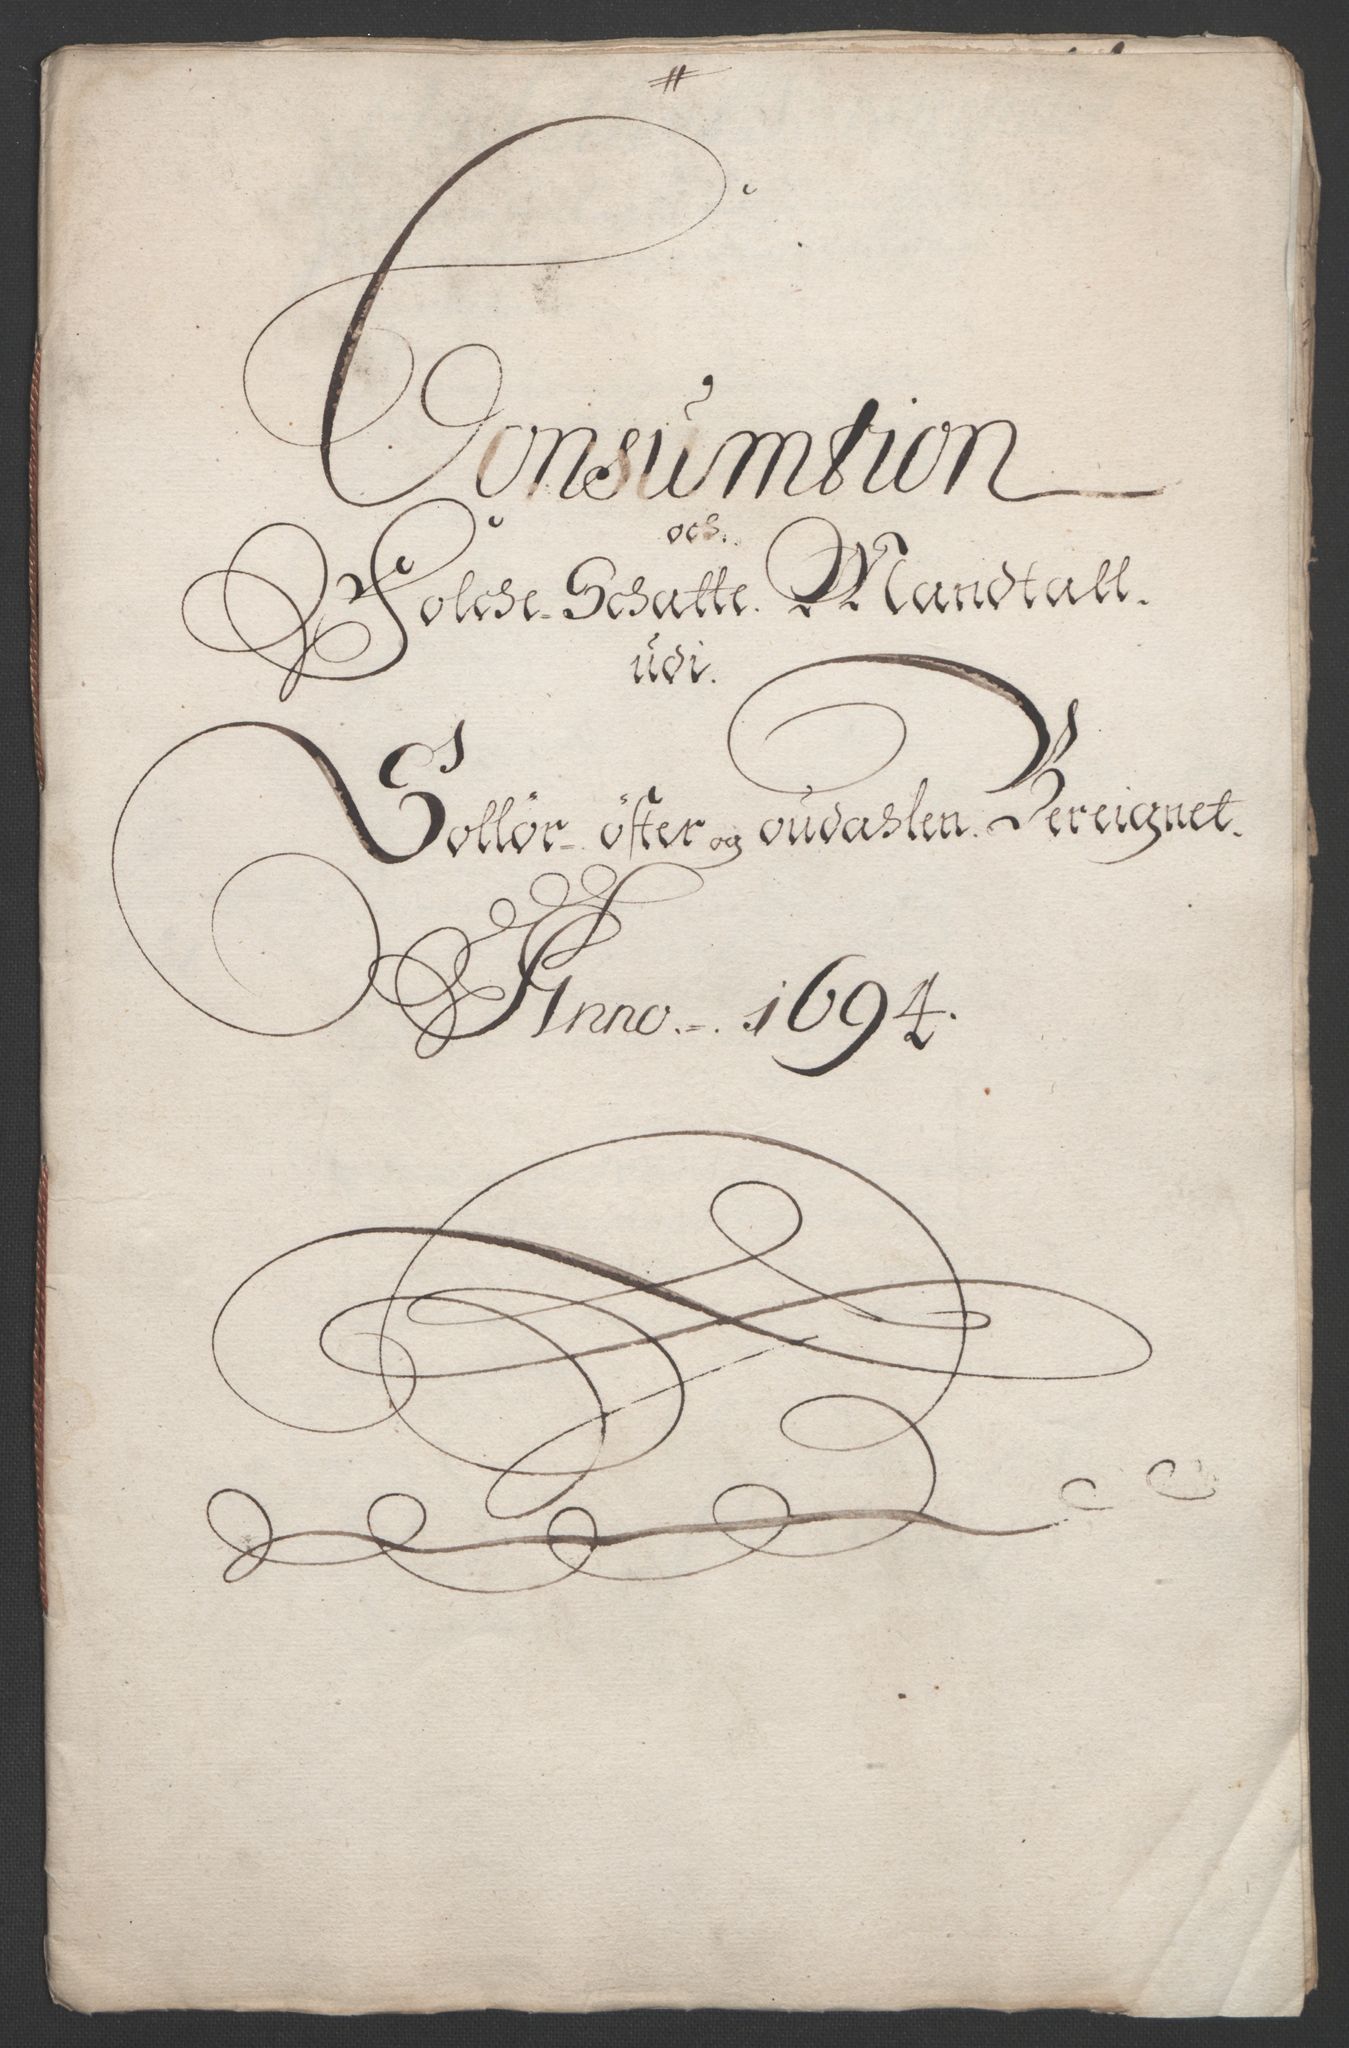 #
Consumtion
och.
Folche-Schatte. Mandtall.
udi.
Sollør- øster og oudahlen. Bereignet.
Anno.-. 1694.